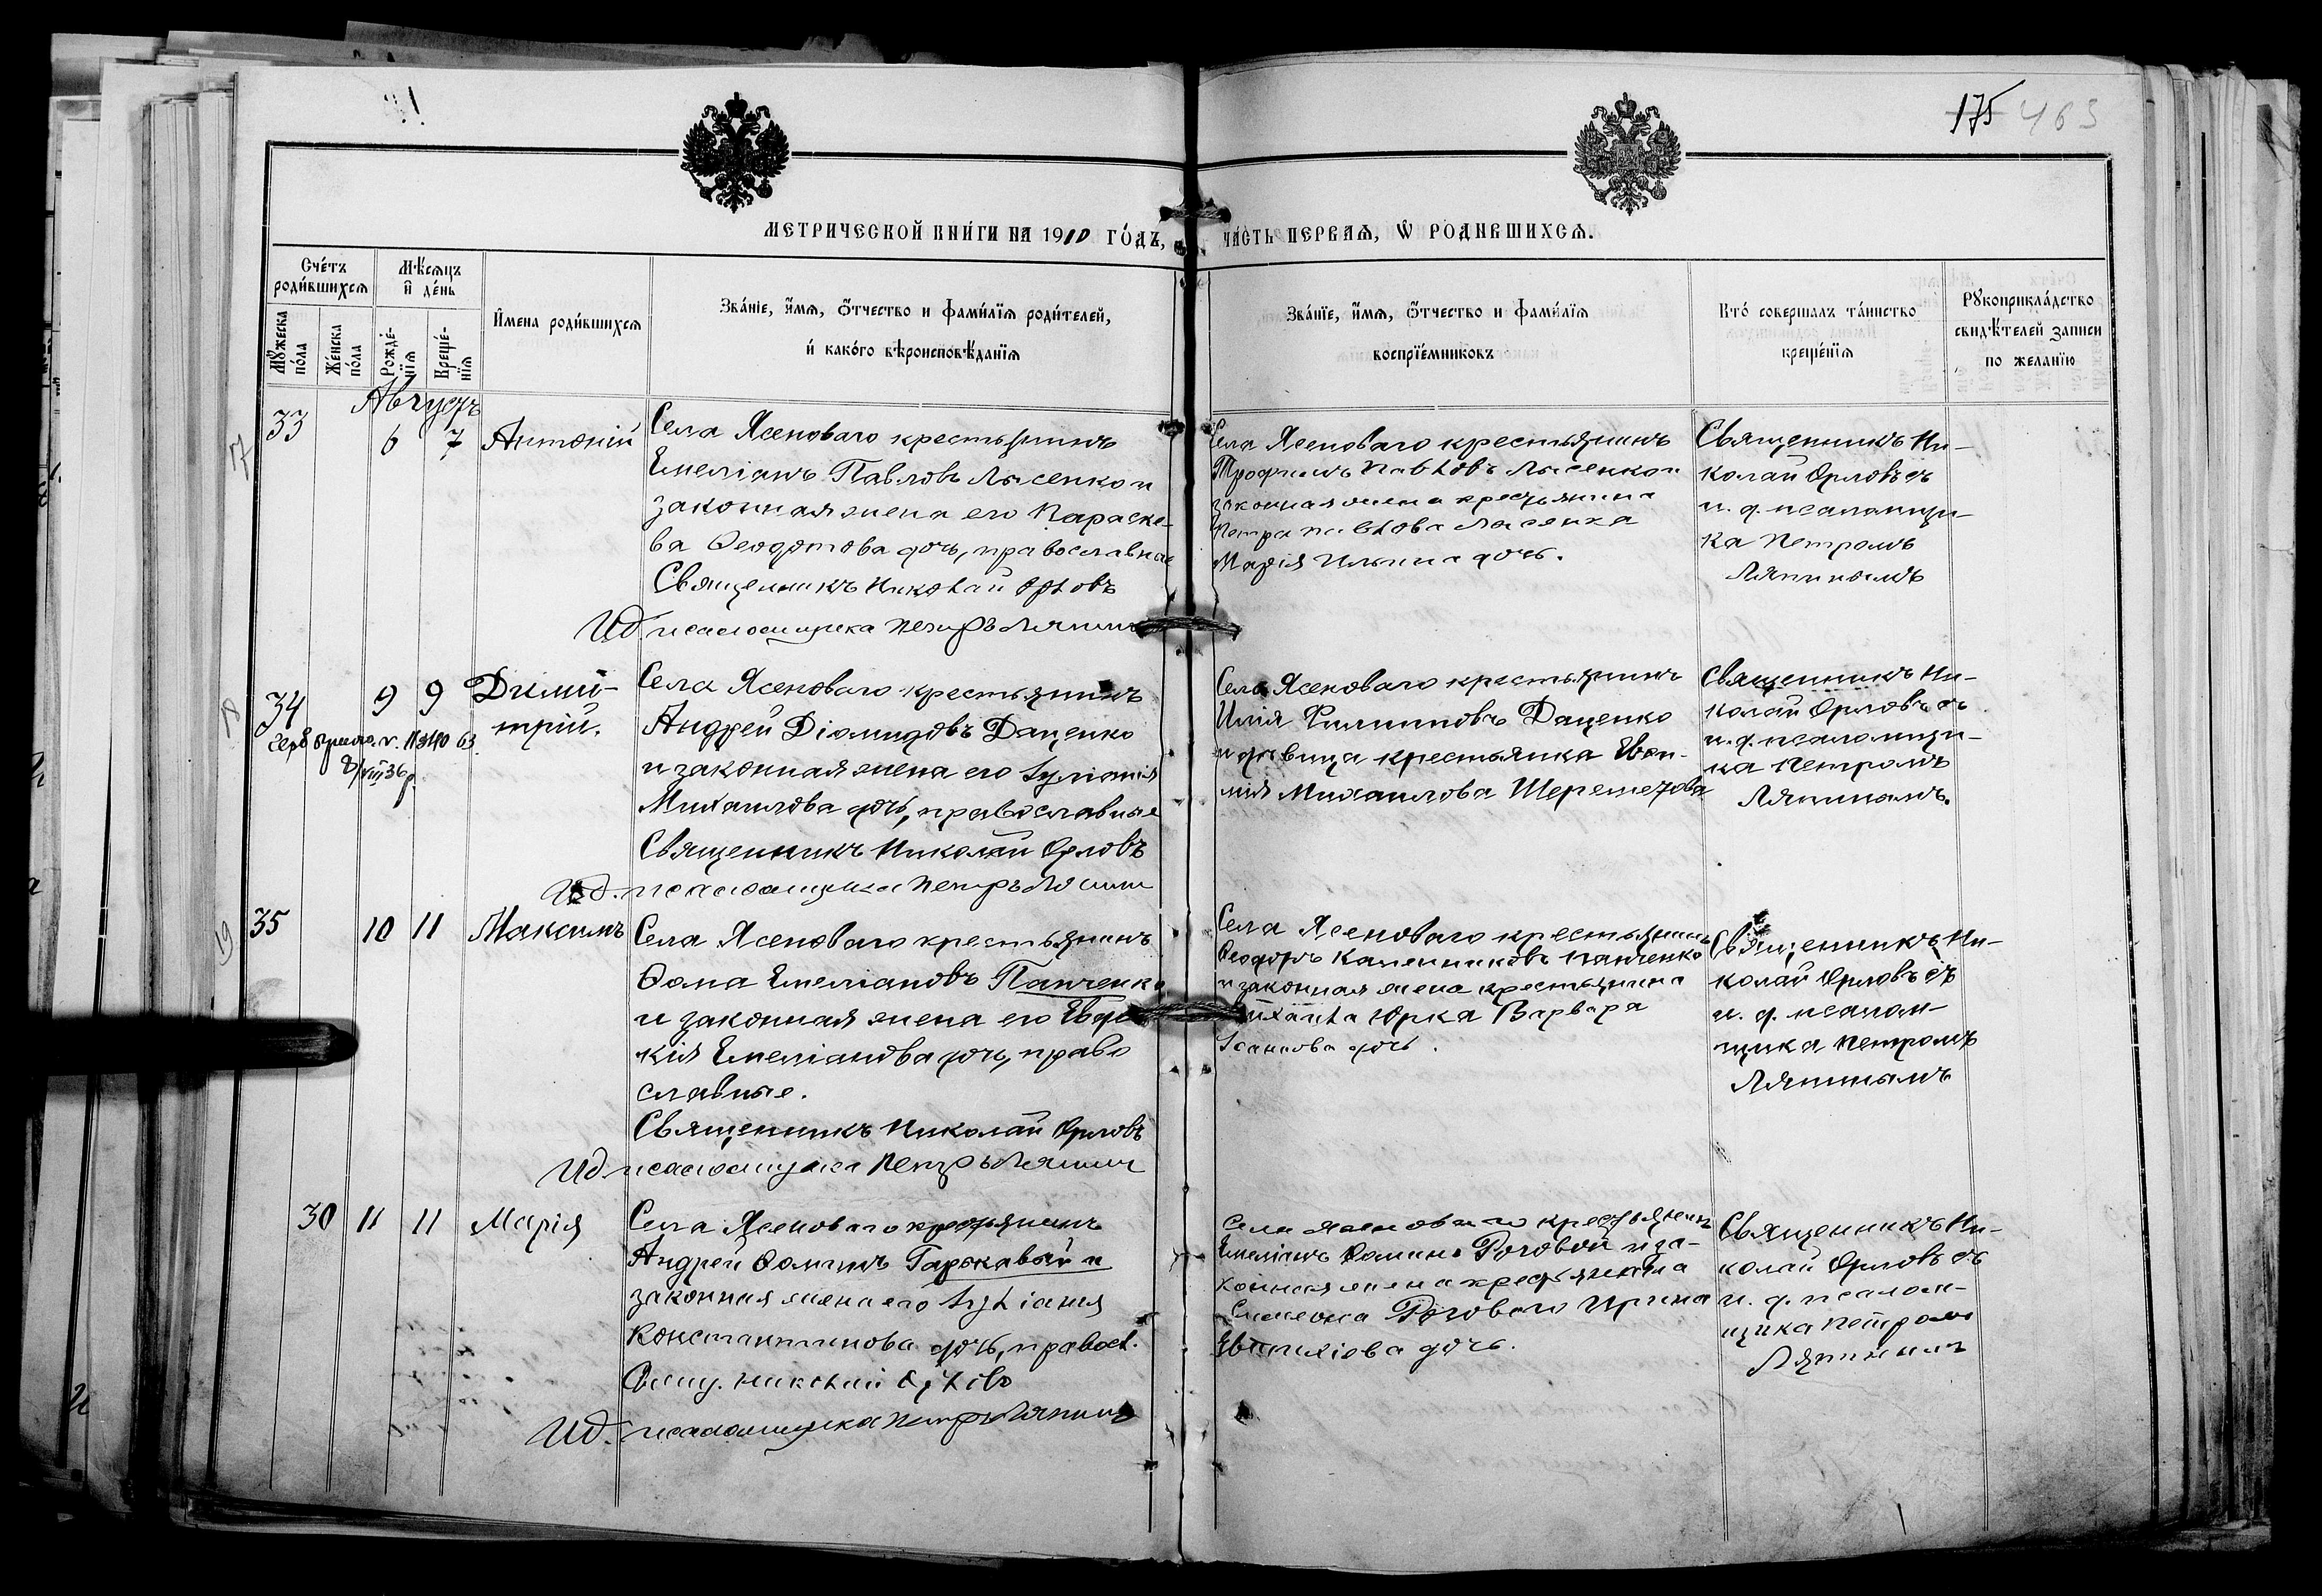 175 463
МЕТРИЧЕСКОЙ КНИ́ГИ НА 1910 ГО́ДЪ,
ЧА́СТЬ ПЕРВАЯ, Ѡ РОДИВШИХСЯ.
Сче́тъ роди́вшихся
Мꙋ́жеска по́ла
Же́нска по́ла
Мѣ́сяцъ и҆ де́нь
Рожде́нїя
Креще́нїя
И҆мена роди́вшихся
Зва́нїе, и҆́мя, ѻ҆́тчество и фами́лїя роди́телей,
и҆ како́го вѣроисповѣ́данїя
Зва́нїе, и҆́мя, ѻ҆́тчество и фами́лїя
воспрїе́мниковъ
Кто́ совершалъ та́инство
креще́нїя
Рꙋкоприкла́дство
свидѣ́телей записи
по желанїю
Августъ
33
6 7
Антоній
Села Ясеноваго крестьянинъ
Емеліанъ Павловъ Лысенко и
законная жена его Параске-
ва Ѳеодотова дочь, православные
Священникъ Николай Орловъ
И д. псаломщика Петръ Ляпинъ
Села Ясеноваго крестьянинъ
Трофимъ Павловъ Лысенко и
законная жена крестьянина
Петра Павлова Лысенка
Марія Ильина дочь.
Священникъ Ни-
колай Орловъ съ
и. д. псаломщи-
ка Петромъ
Ляпинымъ
34
9 9
Дими-
трій.
63
8/VIII 36 р.
Села Ясеноваго крестьянинъ
Андрей Діомидовъ Даценко
и законная жена его Іуліанія
Михаилова дочь, православные
Священникъ Николай Орловъ
И д. псаломщика Петръ Ляпинъ
Села Ясеноваго крестьянинъ
Илія Филипповъ Даценко
и дѣвица крестьянка Евѳи-
мія Михаилова Шереметова
Священникъ Ни-
колай Орловъ съ
и. д. псаломщи-
ка Петромъ
Ляпинымъ.
35
10 11
Максимъ
Села Ясеноваго крестьянинъ
Ѳома Емеліановъ Панченко
и законная жена его Евдо-
кія Емеліанова дочь, право
славные.
Священникъ Николай Орловъ
И д. псаломщика Петръ Ляпинъ
Села Ясеноваго крестьянинъ
Ѳеодоръ Калинниковъ Панченко
и законная жена крестьянина
Михаила Юрка Варвара
Іоаннова дочь.
Священникъ Ни-
колай Орловъ съ
и. д. псалом-
щика Петромъ
Ляпинымъ
30
11 11
Марія
Села Ясеноваго крестьянинъ
Андрей Ѳоминъ Гаркавый и
законная жена его Іуліанія
Константинова дочь, правосл.
Свящ. Николай Орловъ
И д. псаломщика Петръ Ляпинъ
Села Ясеноваго крестьянинъ
Емеліанъ Ѳоминъ Роговой и за-
конная жена крестьянина
Симеона Рогового Ирина
Евѳиміева дочь.
Священникъ Ни-
колай Орловъ съ
и. д. псалом-
щика Петромъ
Ляпинымъ